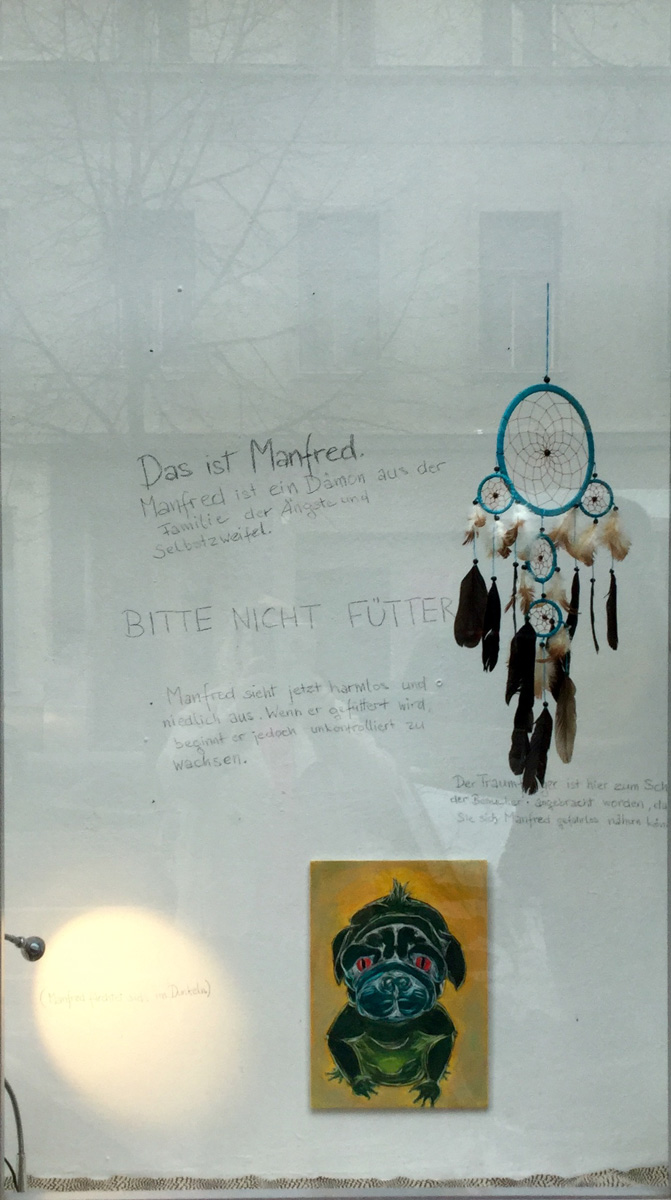 Das ist Manfred.
Manfred ist ein Dämon aus der
Familie der Ängste und
Selbstzweifel.
BITTE NICHT FÜTTER
Manfred sieht jetzt harmlos und
niedlich aus. Wenn er gefüttert wird,
beginnt er jedoch unkontrolliert zu
wachsen.
Der ist hier zum Sch
der angebracht worden, da
Sie sich Manfred gefahrlos nähern kön
(Manfred